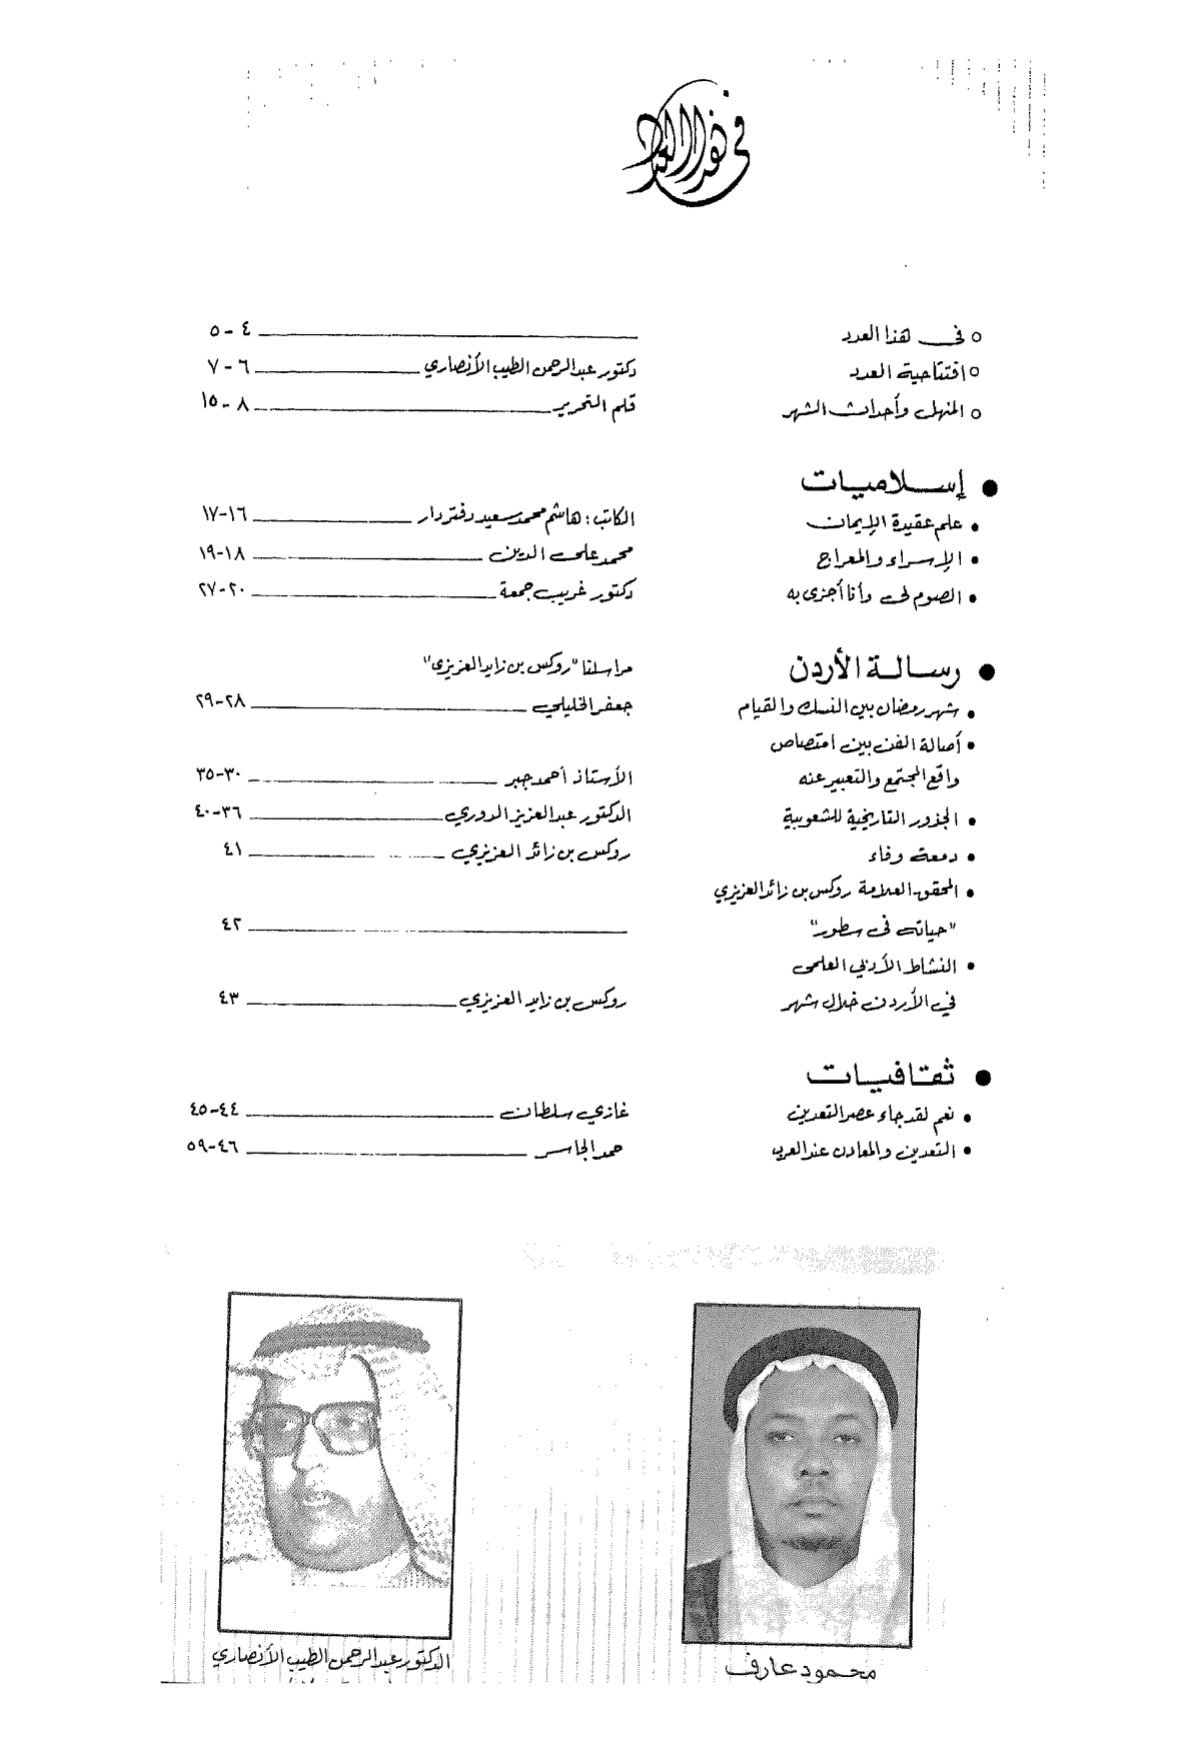 في هذا العدد
○ في هذا العدد ٤ - ٥
○ افتتاحية العدد دكتور عبدالرحمن الطيب الأنصاري ٦ - ٧
○ المنهل وأحداث الشهر قلم التحرير ٨ - ١٥
● إسلاميات
• علم عقيدة الإيمان الكاتب : هاشم محمد سعيد دفتردار ١٦-١٧
• الإسراء والمعراج محمد علي الدين ١٨-١٩
• الصوم لي وأنا أجزى به دكتور غريب جمعة ٢٠-٢٧
● رسالة الأردن مراسلنا "روكس بن زايد العزيزي"
• شهر رمضان بين النسك والقيام جعفر الخليلي ٢٨-٢٩
• أصالة الفن بين امتصاص
واقع المجتمع والتعبير عنه الأستاذ أحمد جبر ٣٠-٣٥
• الجذور التاريخية للشعوبية الدكتور عبدالعزيز الدوري ٣٦-٤٠
• دمعة وفاء روكس بن زائد العزيزي ٤١
• المحقق العلامة روكس بن زائد العزيزي
"حياته في سطور" ٤٢
• النشاط الأدبي العلمى
في الأردن خلال شهر روكس بن زايد العزيزي ٤٣
● ثقافيات
• نعم لقد جاء عصر التعدين غازي سلطان ٤٤-٤٥
• التعدين والمعادن عند العرب حمد الجاسر ٤٦-٥٩
محمود عارف
الدكتور عبدالرحمن الطيب الأنصاري